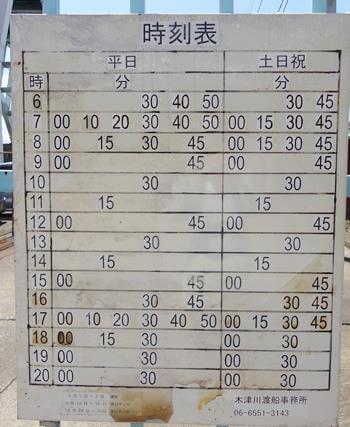 時刻表
平日 土日祝
時 分 分
6 30 40 50 30 45
7 00 10 20 30 40 50 00 15 30 45
8 00 15 30 45 00 15 30 45
9 00 45 00 45
10 30 30
11 15 15
12 00 45 00 45
13 30 30
14 15 15
15 00 45 00 45
16 30 45 30 45
17 00 10 20 30 40 50 00 15 30 45
18 00 15 30 00 30
19 00 30 00 30
20 00 30 00 30
木津川渡船事務所
06-6551-3143